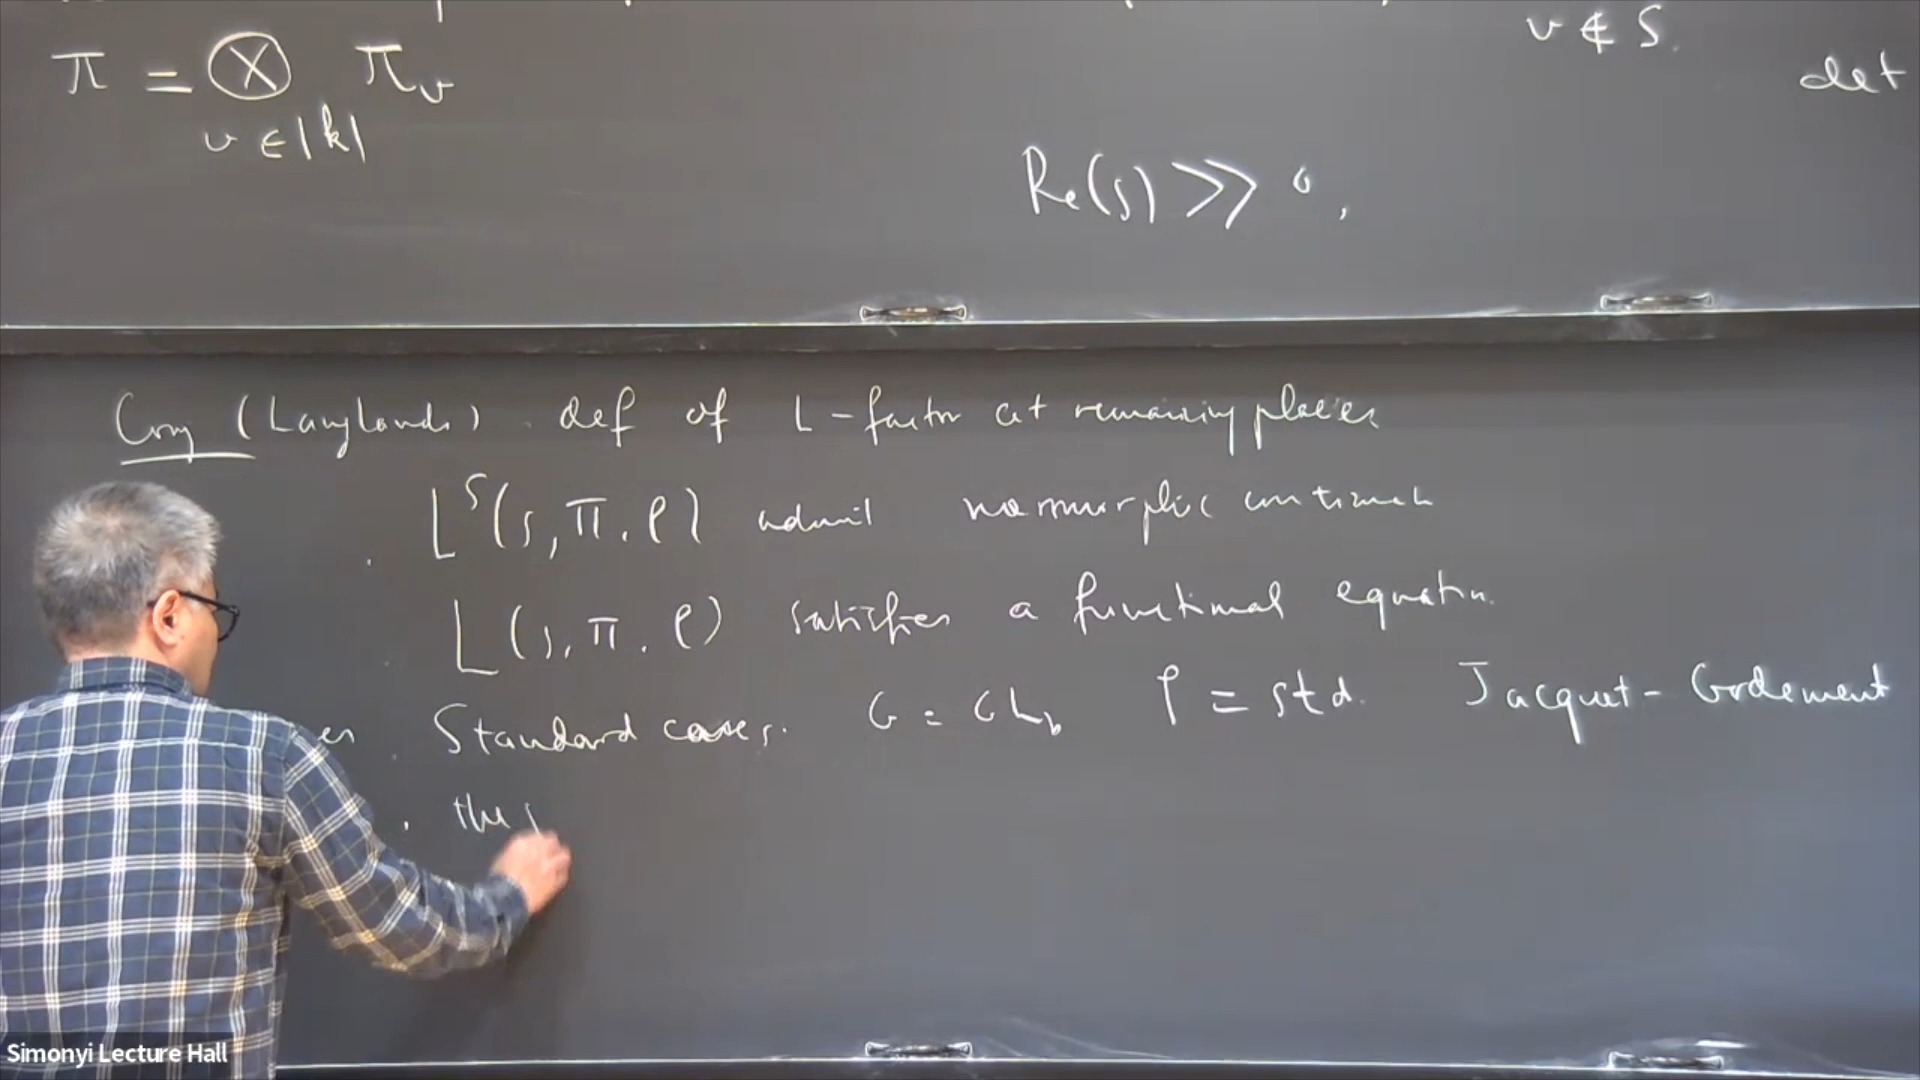 π = ⊗ π_v
v ∈ |k|
v ∉ S.
det
Re(s) ≫ 0,
Conj (Langlands). def of L-factor at remaining places
L^S(s, π, ρ) admit meromorphic continuat
L(s, π, ρ) satisfies a functional equation.
Standard cases. G = GL_n ρ = std. Jacquet-Godement
. the
Simonyi Lecture Hall